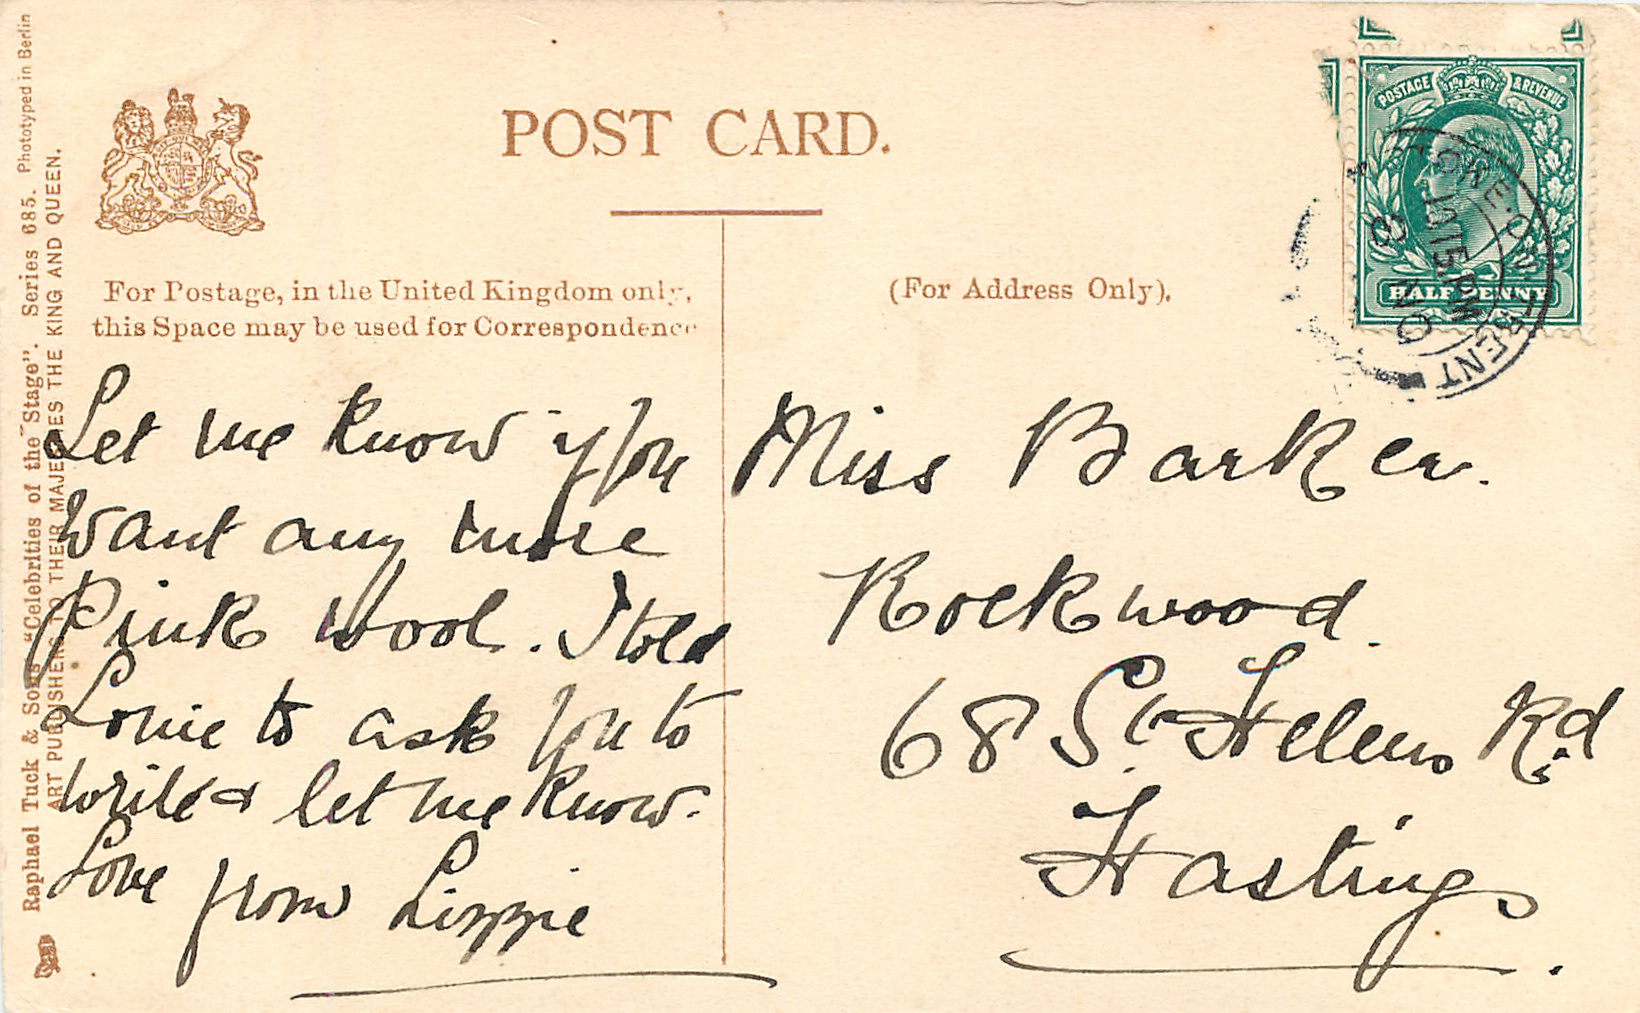 Raphael Tuck & Sons "Celebrities of the Stage". Series 685. Phototyped in Berlin
ART PUBLISHERS TO THEIR MAJESTIES THE KING AND QUEEN.
POST CARD.
For Postage, in the United Kingdom only,
this Space may be used for Correspondence
(For Address Only).
POSTAGE & REVENUE
HALFPENNY
STOKE·ON·TRENT
10 15 PM
Let me know if you
want any more
Pink wool. I told
Louie to ask you to
write & let me know.
Love from Lizzie
Miss Barker.
Rockwood.
68 St Helens Rd
Hastings.